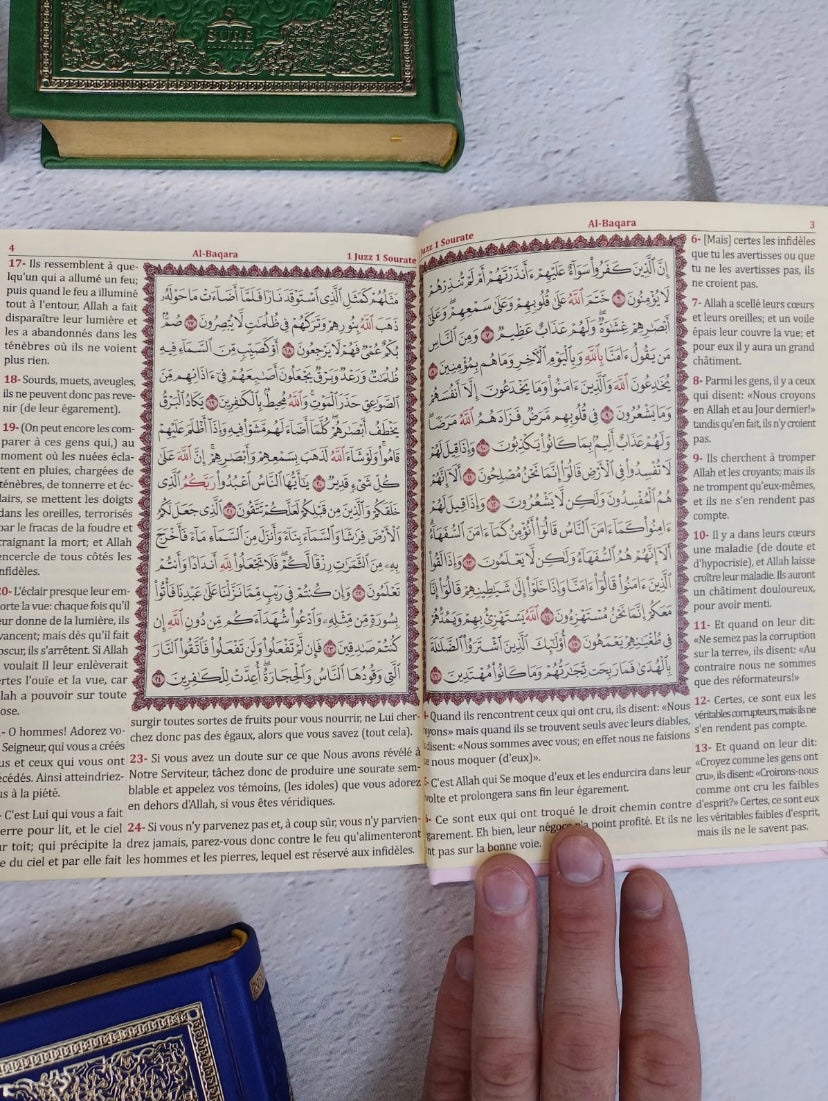 SURE
Al-Baqara 3
Juzz 1 Sourate
إِنَّ الَّذِينَ كَفَرُوا سَوَاءٌ عَلَيْهِمْ ءَأَنذَرْتَهُمْ أَمْ لَمْ تُنذِرْهُمْ
لَا يُؤْمِنُونَ ٦ خَتَمَ اللَّهُ عَلَىٰ قُلُوبِهِمْ وَعَلَىٰ سَمْعِهِمْ ۖ وَعَلَىٰ
أَبْصَٰرِهِمْ غِشَٰوَةٌ ۖ وَلَهُمْ عَذَابٌ عَظِيمٌ ٧ وَمِنَ النَّاسِ
مَن يَقُولُ ءَامَنَّا بِاللَّهِ وَبِالْيَوْمِ الْءَاخِرِ وَمَا هُم بِمُؤْمِنِينَ ٨
يُخَٰدِعُونَ اللَّهَ وَالَّذِينَ ءَامَنُوا وَمَا يَخْدَعُونَ إِلَّا أَنفُسَهُمْ
وَمَا يَشْعُرُونَ ٩ فِي قُلُوبِهِم مَّرَضٌ فَزَادَهُمُ اللَّهُ مَرَضًا ۖ
وَلَهُمْ عَذَابٌ أَلِيمٌ بِمَا كَانُوا يَكْذِبُونَ ١٠ وَإِذَا قِيلَ لَهُمْ
لَا تُفْسِدُوا فِي الْأَرْضِ قَالُوا إِنَّمَا نَحْنُ مُصْلِحُونَ ١١ أَلَا إِنَّهُمْ
هُمُ الْمُفْسِدُونَ وَلَٰكِن لَّا يَشْعُرُونَ ١٢ وَإِذَا قِيلَ لَهُمْ
ءَامِنُوا كَمَا ءَامَنَ النَّاسُ قَالُوا أَنُؤْمِنُ كَمَا ءَامَنَ السُّفَهَاءُ ۗ
أَلَا إِنَّهُمْ هُمُ السُّفَهَاءُ وَلَٰكِن لَّا يَعْلَمُونَ ١٣ وَإِذَا لَقُوا
الَّذِينَ ءَامَنُوا قَالُوا ءَامَنَّا وَإِذَا خَلَوْا إِلَىٰ شَيَٰطِينِهِمْ قَالُوا إِنَّا
مَعَكُمْ إِنَّمَا نَحْنُ مُسْتَهْزِءُونَ ١٤ اللَّهُ يَسْتَهْزِئُ بِهِمْ وَيَمُدُّهُمْ
فِي طُغْيَٰنِهِمْ يَعْمَهُونَ ١٥ أُولَٰئِكَ الَّذِينَ اشْتَرَوُا الضَّلَٰلَةَ
بِالْهُدَىٰ فَمَا رَبِحَت تِّجَٰرَتُهُمْ وَمَا كَانُوا مُهْتَدِينَ ١٦
6- [Mais] certes les infidèles
que tu les avertisses ou que
tu ne les avertisses pas, ils
ne croient pas.
7- Allah a scellé leurs cœurs
et leurs oreilles; et un voile
épais leur couvre la vue; et
pour eux il y aura un grand
châtiment.
8- Parmi les gens, il y a ceux
qui disent: «Nous croyons
en Allah et au Jour dernier!»
tandis qu'en fait, ils n'y croient
pas.
9- Ils cherchent à tromper
Allah et les croyants; mais ils
ne trompent qu'eux-mêmes,
et ils ne s'en rendent pas
compte.
10- Il y a dans leurs cœurs
une maladie (de doute et
d'hypocrisie), et Allah laisse
croître leur maladie. Ils auront
un châtiment douloureux,
pour avoir menti.
11- Et quand on leur dit:
«Ne semez pas la corruption
sur la terre», ils disent: «Au
contraire nous ne sommes
que des réformateurs!»
12- Certes, ce sont eux les
véritables corrupteurs, mais ils ne
s'en rendent pas compte.
13- Et quand on leur dit:
«Croyez comme les gens ont
cru», ils disent: «Croirons-nous
comme ont cru les faibles
d'esprit?» Certes, ce sont eux
les véritables faibles d'esprit,
mais ils ne le savent pas.
Quand ils rencontrent ceux qui ont cru, ils disent: «Nous
yons» mais quand ils se trouvent seuls avec leurs diables,
disent: «Nous sommes avec vous; en effet nous ne faisions
e nous moquer (d'eux)».
C'est Allah qui Se moque d'eux et les endurcira dans leur
volte et prolongera sans fin leur égarement.
Ce sont eux qui ont troqué le droit chemin contre
garement. Eh bien, leur négoce n'a point profité. Et ils ne
nt pas sur la bonne voie.
4 Al-Baqara 1 Juzz 1 Sourate
مَثَلُهُمْ كَمَثَلِ الَّذِي اسْتَوْقَدَ نَارًا فَلَمَّا أَضَاءَتْ مَا حَوْلَهُ
ذَهَبَ اللَّهُ بِنُورِهِمْ وَتَرَكَهُمْ فِي ظُلُمَٰتٍ لَّا يُبْصِرُونَ ١٧ صُمٌّ
بُكْمٌ عُمْيٌ فَهُمْ لَا يَرْجِعُونَ ١٨ أَوْ كَصَيِّبٍ مِّنَ السَّمَاءِ فِيهِ
ظُلُمَٰتٌ وَرَعْدٌ وَبَرْقٌ يَجْعَلُونَ أَصَٰبِعَهُمْ فِي ءَاذَانِهِم مِّنَ
الصَّوَٰعِقِ حَذَرَ الْمَوْتِ ۚ وَاللَّهُ مُحِيطٌ بِالْكَٰفِرِينَ ١٩ يَكَادُ الْبَرْقُ
يَخْطَفُ أَبْصَٰرَهُمْ ۖ كُلَّمَا أَضَاءَ لَهُم مَّشَوْا فِيهِ وَإِذَا أَظْلَمَ عَلَيْهِمْ
قَامُوا ۚ وَلَوْ شَاءَ اللَّهُ لَذَهَبَ بِسَمْعِهِمْ وَأَبْصَٰرِهِمْ ۚ إِنَّ اللَّهَ عَلَىٰ
كُلِّ شَيْءٍ قَدِيرٌ ٢٠ يَٰأَيُّهَا النَّاسُ اعْبُدُوا رَبَّكُمُ الَّذِي
خَلَقَكُمْ وَالَّذِينَ مِن قَبْلِكُمْ لَعَلَّكُمْ تَتَّقُونَ ٢١ الَّذِي جَعَلَ لَكُمُ
الْأَرْضَ فِرَٰشًا وَالسَّمَاءَ بِنَاءً وَأَنزَلَ مِنَ السَّمَاءِ مَاءً فَأَخْرَجَ
بِهِ مِنَ الثَّمَرَٰتِ رِزْقًا لَّكُمْ ۖ فَلَا تَجْعَلُوا لِلَّهِ أَندَادًا وَأَنتُمْ
تَعْلَمُونَ ٢٢ وَإِن كُنتُمْ فِي رَيْبٍ مِّمَّا نَزَّلْنَا عَلَىٰ عَبْدِنَا فَأْتُوا
بِسُورَةٍ مِّن مِّثْلِهِ وَادْعُوا شُهَدَاءَكُم مِّن دُونِ اللَّهِ إِن
كُنتُمْ صَٰدِقِينَ ٢٣ فَإِن لَّمْ تَفْعَلُوا وَلَن تَفْعَلُوا فَاتَّقُوا النَّارَ
الَّتِي وَقُودُهَا النَّاسُ وَالْحِجَارَةُ ۖ أُعِدَّتْ لِلْكَٰفِرِينَ ٢٤
17- Ils ressemblent à que-
lqu'un qui a allumé un feu;
puis quand le feu a illuminé
tout à l'entour, Allah a fait
disparaître leur lumière et
les a abandonnés dans les
ténèbres où ils ne voient
plus rien.
18- Sourds, muets, aveugles,
ils ne peuvent donc pas reve-
nir (de leur égarement).
19- (On peut encore les com-
parer à ces gens qui,) au
moment où les nuées écla-
tent en pluies, chargées de
ténèbres, de tonnerre et éc-
lairs, se mettent les doigts
dans les oreilles, terrorisés
par le fracas de la foudre et
craignant la mort; et Allah
encercle de tous côtés les
nfidèles.
20- L'éclair presque leur em-
orte la vue: chaque fois qu'il
eur donne de la lumière, ils
vancent; mais dès qu'il fait
obscur, ils s'arrêtent. Si Allah
voulait Il leur enlèverait
ertes l'ouïe et la vue, car
llah a pouvoir sur toute
ose.
- O hommes! Adorez vo-
Seigneur, qui vous a créés
us et ceux qui vous ont
écédés. Ainsi atteindriez-
us à la piété.
C'est Lui qui vous a fait
erre pour lit, et le ciel
r toit; qui précipite la
e du ciel et par elle fait
surgir toutes sortes de fruits pour vous nourrir, ne Lui cher-
chez donc pas des égaux, alors que vous savez (tout cela).
23- Si vous avez un doute sur ce que Nous avons révélé à
Notre Serviteur, tâchez donc de produire une sourate sem-
blable et appelez vos témoins, (les idoles) que vous adorez
en dehors d'Allah, si vous êtes véridiques.
24- Si vous n'y parvenez pas et, à coup sûr, vous n'y parvien-
drez jamais, parez-vous donc contre le feu qu'alimenteront
les hommes et les pierres, lequel est réservé aux infidèles.